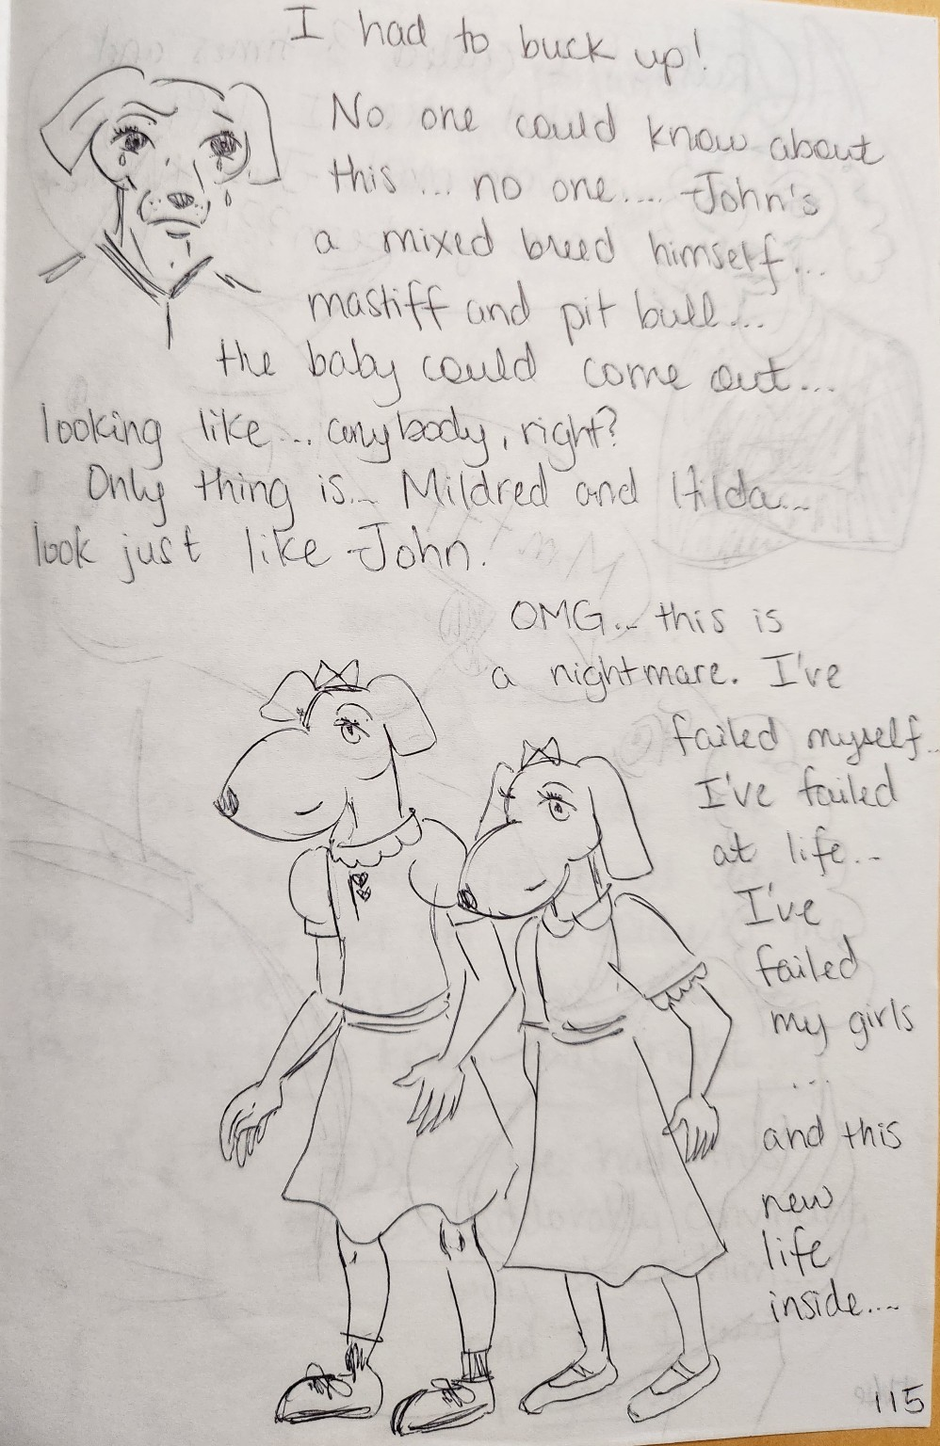 I had to buck up!
No one could know about
this... no one.... John's
a mixed breed himself...
mastiff and pit bull...
the baby could come out...
looking like... anybody, right?
Only thing is... Mildred and Hilda...
look just like John.
OMG... this is
a nightmare. I've
failed myself...
I've failed
at life...
I've
failed
my girls
...
and this
new
life
inside....
115